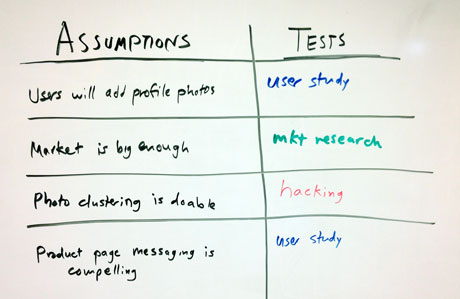 ASSUMPTIONS
TESTS
Users will add profile photos
user study
Market is big enough
mkt research
Photo clustering is doable
hacking
Product page messaging is
compelling
user study